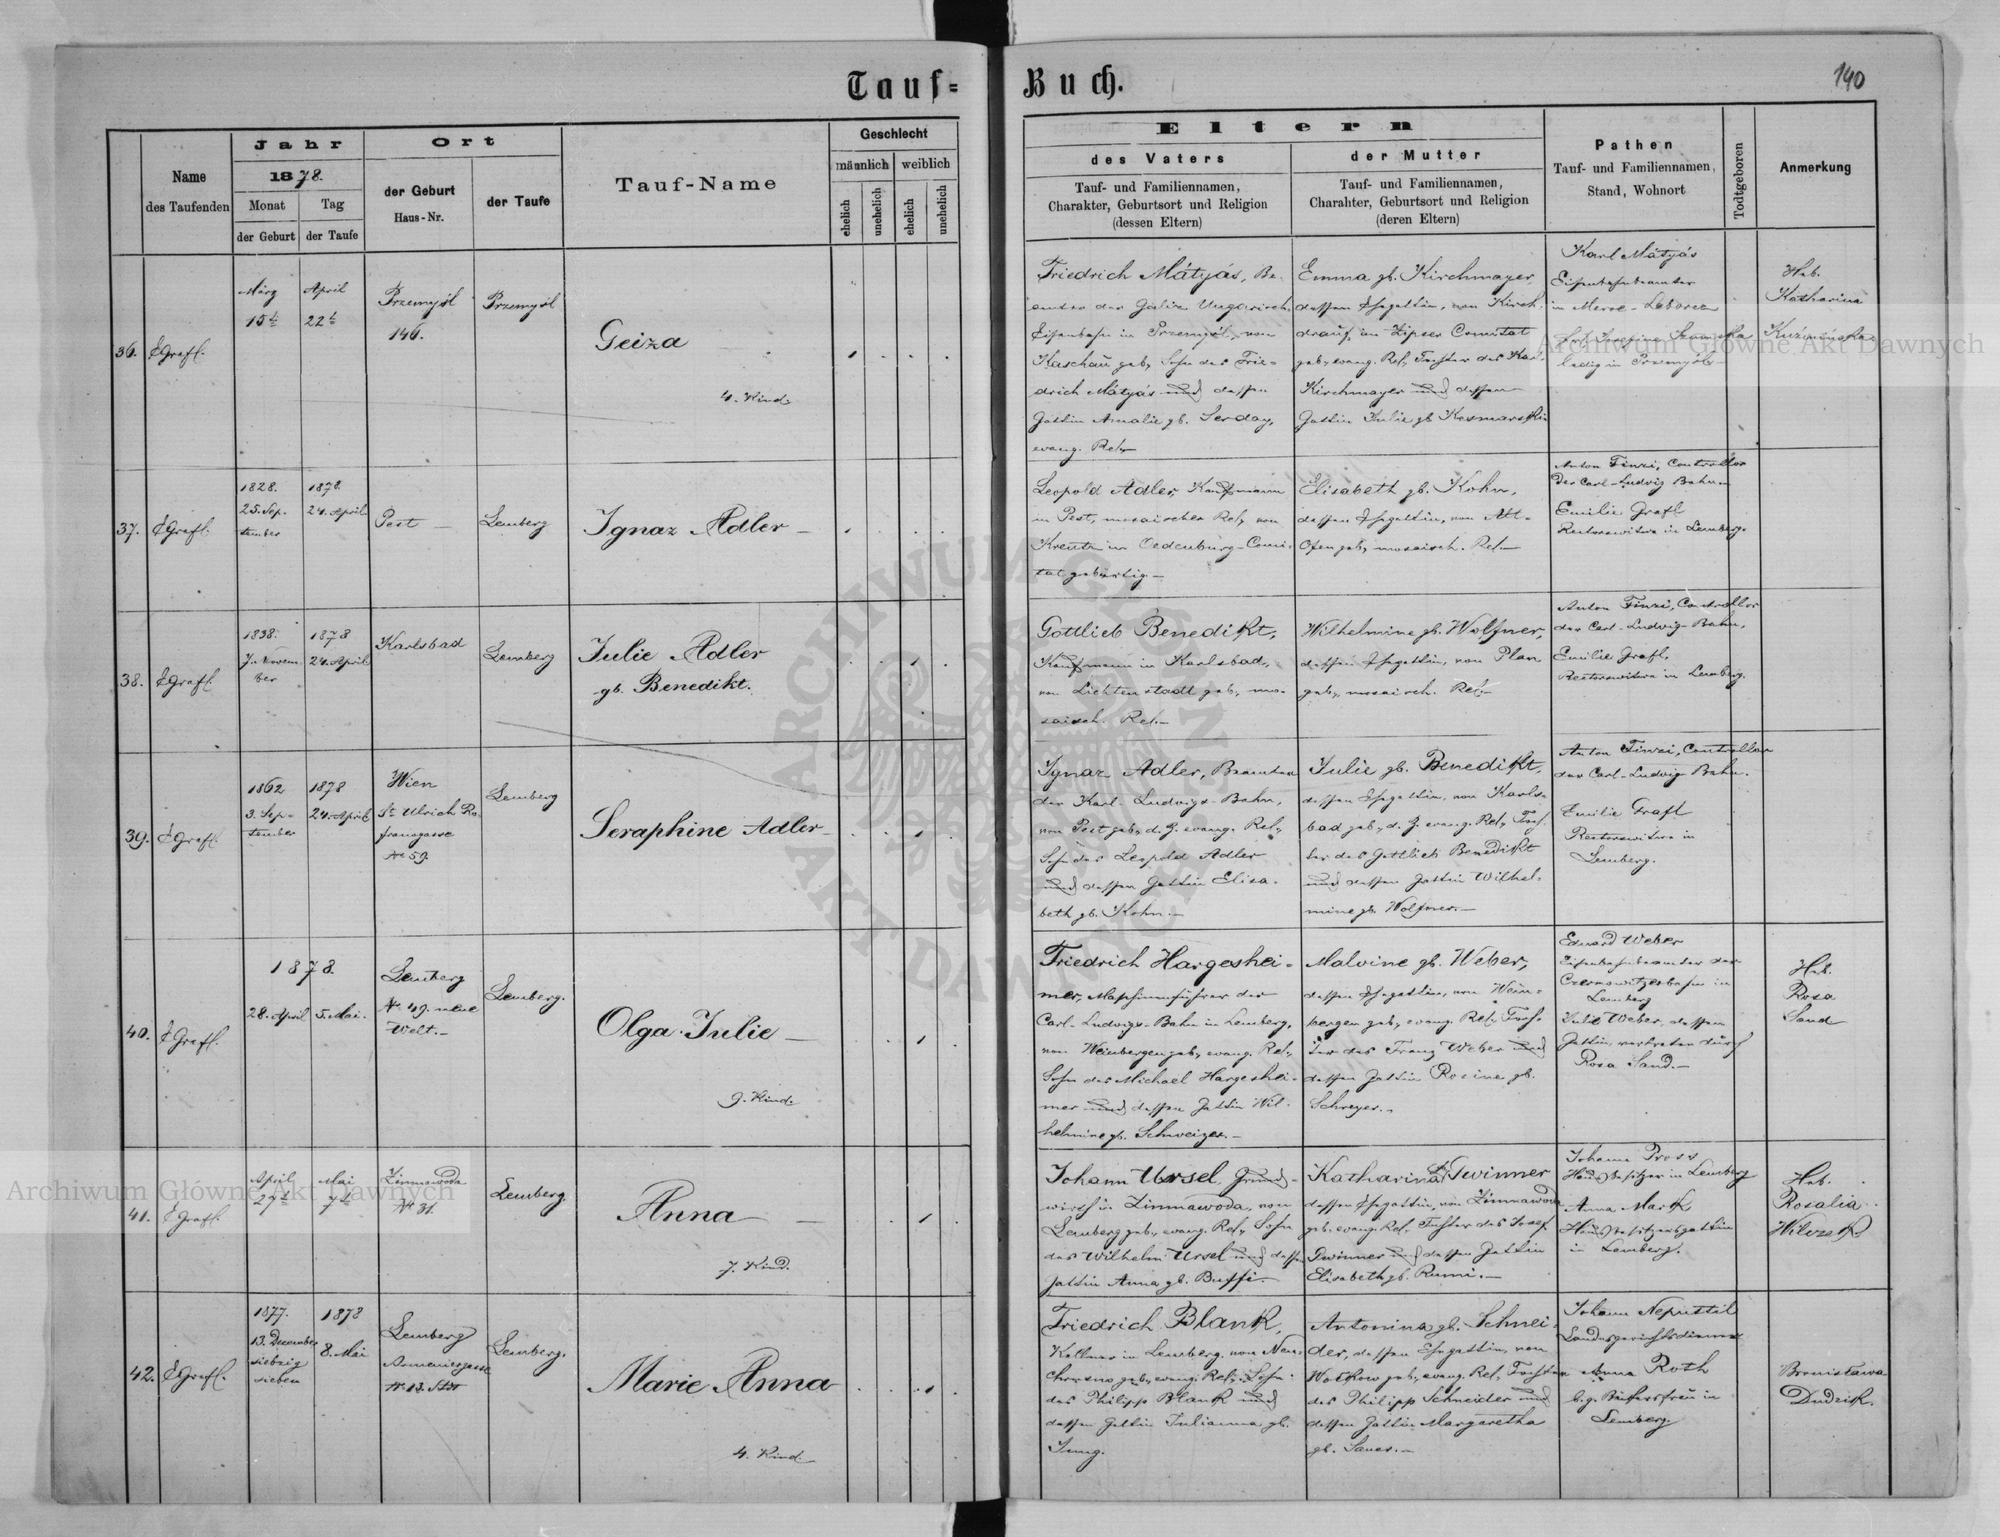 Tauf=
Buch.
140
Name
des Taufenden
Jahr
1878.
Monat
Tag
der Geburt
der Taufe
Ort
der Geburt
Haus-Nr.
der Taufe
Tauf-Name
Geschlecht
männlich
weiblich
ehelich
unehelich
ehelich
unehelich
Eltern
des Vaters
Tauf- und Familiennamen,
Charakter, Geburtsort und Religion
(dessen Eltern)
der Mutter
Tauf- und Familiennamen,
Charahter, Geburtsort und Religion
(deren Eltern)
Pathen
Tauf- und Familiennamen,
Stand, Wohnort
Todtgeboren
Anmerkung
36.
EGrafl.
März
15t
April
22t
Przemyśl
146.
Przemyśl
Geiza
4. Kind.
Friedrich Mátyás, Be-
amter der Galiz. Ungarisch.
Eisenbahn in Przemyśl, von
Kaschau geb., Sohn des Frie-
drich Mátyás und dessen
Gattin Amalie gb. Serday,
evang. Rel.
Emma gb. Kirchmayer,
dessen Ehegattin, von Kirch-
drauf, im Zipser Comitat
geb., evang. Rel., Tochter des Karl
Kirchmayer und dessen
Gattin Julie gb.
Karl Mátyás
Eisenbahnbeamter
in Mezoe-Laborcz
ledig in Przemyśl
Heb.
Katharina
Kuźmińska
37.
EGrafl.
1828.
25. Sep-
tember
1878.
24. April
Pest
Lemberg
Ignaz Adler
Leopold Adler, Kaufmann
in Pest, mosaischer Rel., von
Kreutz im Oedenburg-Comi-
tat gebürtig.
Elisabeth gb. Kohn,
dessen Ehegattin, von Alt-
Ofen geb., mosaisch. Rel.
Anton Finzi, Controllor
der Carl-Ludwig Bahn
Emilie Grafl
Rectorswitwe in Lemberg.
38.
EGrafl
1838.
7. Novem-
ber
1878
24. April
Karlsbad
Lemberg
Julie Adler
gb. Benedikt.
Gottlieb Benedikt,
Kaufmann in Karlsbad,
von Lichtenstadt geb., mo-
saisch. Rel.
Wilhelmine gb. Wolfner,
dessen Ehegattin, von Plan
geb., mosaisch. Rel.
Anton Finzi, Controllor
der Carl-Ludwig-Bahn,
Emilie Grafl,
Rectorswitwe in Lemberg.
39.
EGrafl
1862
3. Sep-
tember
1878
24. April
Wien
St. Ulrich Ro-
franogasse
No 59.
Lemberg
Seraphine Adler
Ignaz Adler, Beamter
der Karl-Ludwigs-Bahn,
von Pest geb., d. Z. evang. Rel.,
Sohn des Leopold Adler
und dessen Gattin Elisa-
beth gb. Kohn.
Julie gb. Benedikt,
dessen Ehegattin, von Karls-
bad geb., d. Z. evang. Rel., Toch-
ter des Gottlieb Benedikt
und dessen Gattin Wilhel-
mine gb. Wolfner.
Anton Finzi, Controllor
der Carl-Ludwig Bahn.
Emilie Grafl
Rectorswitwe in
Lemberg.
40.
EGrafl.
1878.
28. April
5. Mai.
Lemberg
No 49. neue
Welt.
Lemberg.
Olga Julie
9. Kind.
Friedrich Hargeshei-
mer, Maschinenführer der
Carl-Ludwigs-Bahn in Lemberg,
von Weinbergen geb., evang. Rel.,
Sohn des Michael Hargeshei-
mer und dessen Gattin Wil-
helmine gb. Schweizer.
Malvine gb. Weber,
dessen Ehegattin, von Wein-
bergen geb., evang. Rel. Toch-
ter des Franz Weber und
dessen Gattin Rosine gb.
Schreyer.
Eduard Weber
Eisenbahnbeamter der
Czernowitzerbahn in
Lemberg
Julie Weber, dessen
Gattin, vertreten durch
Rosa Sand.
Heb.
Rosa
Sand
41.
EGrafl.
April
27t
Mai
7t
Zimnawoda
No 31.
Lemberg
Anna
7. Kind.
Johann Ursel, Grund-
wirth in Zimnawoda, von
Lemberg geb., evang. Rel., Sohn
des Wilhelm Ursel und dessen
Gattin Anna gb. Buffi.
Katharina gb. Gwinner
dessen Ehegattin, von Zimnawoda
geb. evang. Rel. Tochter des Josef
Gwinner und dessen Gattin
Elisabeth gb. Rumi.
Johann Pross
Hausbesitzer in Lemberg
Anna Mark
Hausbesitzersgattin
in Lemberg.
Heb.
Rosalia
Wilczek
42.
EGrafl.
1877.
13. December
siebzig
sieben
1878
8. Mai
Lemberg
Armeniergasse
No 13. Stdt
Lemberg.
Marie Anna
4. Kind.
Friedrich Blank,
Kellner in Lemberg, von Neu-
Chrusno geb., evang. Rel., Sohn
des Philipp Blank und
dessen Gattin Julianna gb.
Jung.
Antonina gb. Schnei-
der, dessen Ehegattin, von
Wolkow geb., evang. Rel., Tochter
des Philipp Schneider und
dessen Gattin Margaretha
gb. Sauer.
Johann Neprstil
Landesgerichtsdiener
Anna Roth
b. g. Bäckersfrau in
Lemberg.
Bronisława
Dudzik.
Archiwum Główne Akt Dawnych
Archiwum Główne Akt Dawnych
ARCHIWUM GŁÓWNE AKT DAWNYCH